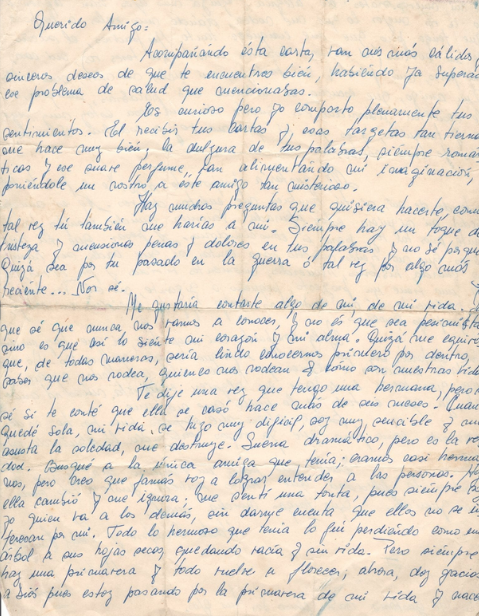 Querido Amigo:
Acompañando ésta carta, van mis más cálidos y
sinceros deseos de que te encuentres bien, habiendo ya superado
ese problema de salud que mencionabas.
Es curioso pero yo comparto plenamente tus
sentimientos. El recibir tus cartas y esas targetas tan tiernas
me hace muy bien; la dulzura de tus palabras, siempre román
ticas y ese suave perfume, van alimentando mi imaginación,
poniéndole un rostro a este amigo tan misterioso.
Hay muchas preguntas que quisiera hacerte, como
tal vez tú también me harías a mi. Siempre hay un toque de
tristeza y mencionas penas y dolores en tus palabras y no sé porque
Quizá sea por tu pasado en la guerra ó tal vez por algo más
reciente... No sé.
Me gustaría contarte algo de mi, de mi vida. Y
que sé que nunca nos vamos a conocer, y no es que sea pesimista
sino es que así lo siente mi corazón y mi alma. Quizá me equivo
que, de todas maneras, sería lindo conocernos primero por dentro,
saber que nos rodea, quienes nos rodean y como son nuestras vidas
Te dije una vez que tengo una hermana, pero n
sé si te conté que ella se casó hace más de seis meses. Cuan
quedé sola, mi vida se hizo muy difícil, soy muy sencible y me
asusta la soledad, me destruye. Suena dramático, pero es la ver
dad. Busqué a la única amiga que tenía; éramos casi herma
nas, pero creo que jamás voy a lograr entender a las personas.
ella cambió y me ignora; me sentí una tonta, pues siempre
yo quien va a los demás, sin darme cuenta que ellos no se in
teresan por mi. Todo lo hermoso que tenía lo fui perdiendo como un
árbol a sus hojas secas, quedando vacía y sin vida. Pero siempre
hay una primavera y todo vuelve a florecer; ahora, doy gracias
a Diós pues estoy pasando por la primavera de mi vida y nace